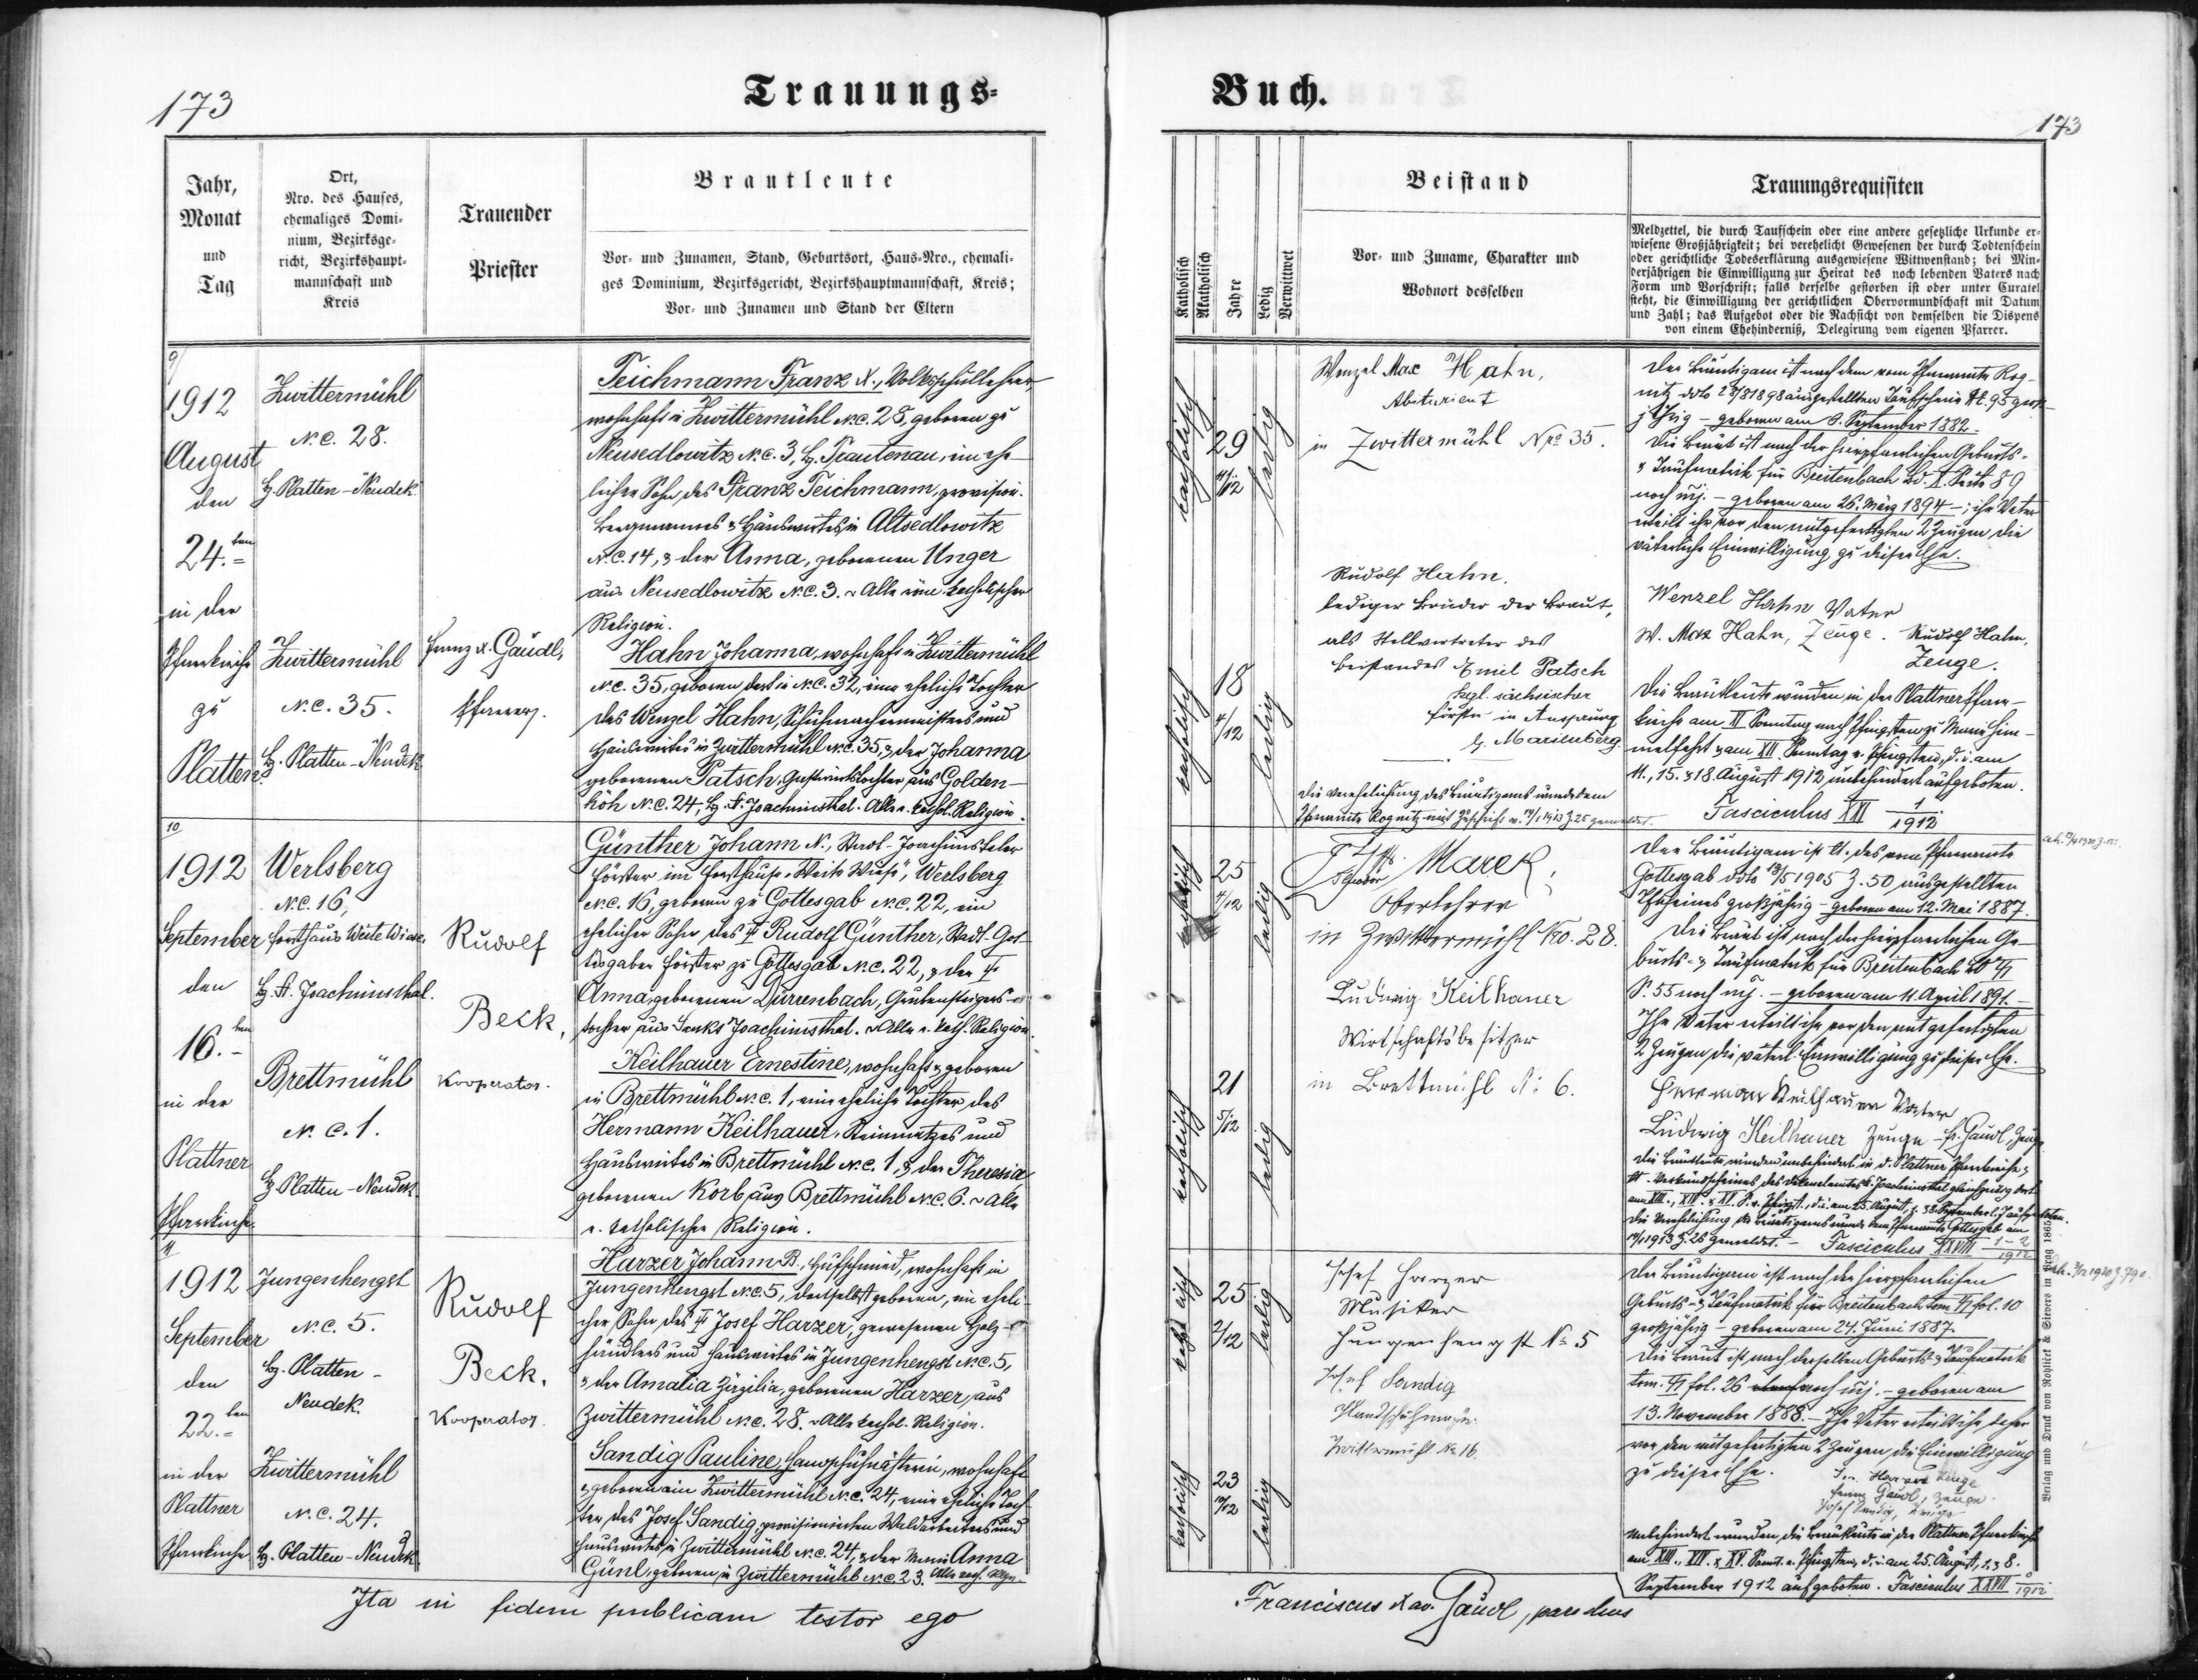 173
Trauungs=
Jahr,
Monat
und
Tag
Ort,
Nro. des Hauses,
ehemaliges Domi-
nium, Bezirksge-
richt, Bezirkshaupt-
mannschaft und
Kreis
Trauender
Priester
Brautleute
Vor- und Zunamen, Stand, Geburtsort, Haus-Nro., ehemali-
ges Dominium, Bezirksgericht, Bezirkshauptmannschaft, Kreis;
Vor- und Zunamen und Stand der Eltern
9/
1912
August
den
24.ten
in der
Pfarrkirche
zu
Platten.
Zwittermühl
N.C. 28.
Bz. Platten-Neudek.
Zwittermühl
N.C. 35.
Bz. Platten-Neudek
Franz X. Gaudl,
Pfarrer.
Teichmann Franz X., Volksschullehrer,
wohnhaft in Zwittermühl N.C. 28, geboren zu
Neusedlowitz N.C. 3, Bz. Trautenau, ein ehe-
licher Sohn des Franz Teichmann, provision.
Bergmannes & Hauswirtes in Altsedlowitz
N.C. 14, & der Anna, geborenen Unger
aus Neusedlowitz N.C. 3. Alle röm. katholischer
Religion.
Hahn Johanna, wohnhaft in Zwittermühl
N.C. 35, geboren dort in N.C. 32, eine eheliche Tochter
des Wenzel Hahn, Schuhmachermeisters und
Hauswirtes in Zwittermühl N.C. 35, & der Johanna
geborenen Patsch, Gastwirtstochter aus Golden-
höh N.C. 24, Bz. St. Joachimsthal. Alle r. kathol. Religion.
10
1912
September
den
16.ten
in der
Plattner
Pfarrkirche.
Werlsberg
N.C. 16,
Forsthaus Weite Wiese,
Bz. St. Joachimsthal.
Brettmühl
N.C. 1.
Bz. Platten-Neudek
Rudolf
Beck,
Kooperator.
Günther Johann N., Stadt-Joachimsthaler
Förster im Forsthause "Weite Wiese", Werlsberg
N.C. 16, geboren zu Gottesgab N.C. 22, ein
ehelicher Sohn des † Rudolf Günther, Stadt-Got-
tesgaber Förster zu Gottesgab N.C. 22, & der †
Anna, geborenen Dürrenbach, Grubensteigers-
tochter aus Sankt Joachimsthal. Alle r. kath. Religion.
Keilhauer Ernestine, wohnhaft & geboren
in Brettmühl N.C. 1, eine eheliche Tochter des
Hermann Keilhauer, Steinmetzes und
Hauswirtes in Brettmühl N.C. 1, & der Theresia
geborenen Korb aus Brettmühl N.C. 6. Alle
r. katholischer Religion.
11/
1912
September
den
22.ten
in der
Plattner
Pfarrkirche
Jungenhengst
N.C. 5.
Bz. Platten-
Neudek.
Zwittermühl
N.C. 24.
Bz. Platten-Neudek.
Rudolf
Beck.
Kooperator.
Harzer Johann B., Hufschmied, wohnhaft in
Jungenhengst N.C. 5, dortselbst geboren, ein eheli-
cher Sohn des † Josef Harzer, gewesenen Holz-
händlers und Hauswirtes in Jungenhengst N.C. 5,
& der Amalia Zirzilia, geborenen Harzer, aus
Zwittermühl N.C. 28. Alle kathol. Religion.
Sandig Pauline, Handschuhnäherin, wohnhaft
& geboren in Zwittermühl N.C. 24, eine eheliche Toch-
ter des Josef Sandig, provisionierten Waldarbeiters und
Hauswirtes in Zwittermühl N.C. 24, & der Marie Anna
Günl, geboren in Zwittermühl N.C. 23. Alle kath. Relgn.
Ita in fidem publicam testor ego
Buch.
173
Katholisch
Akatholisch
Jahre
Ledig
Verwittwet
Beistand
Vor- und Zuname, Charakter und
Wohnort desselben
Trauungsrequisiten
Meldzettel, die durch Taufschein oder eine andere gesetzliche Urkunde er-
wiesene Großjährigkeit; bei verehelicht Gewesenen der durch Todtenschein
oder gerichtliche Todeserklärung ausgewiesene Wittwenstand; bei Min-
derjährigen die Einwilligung zur Heirat des noch lebenden Vaters nach
Form und Vorschrift; falls derselbe gestorben ist oder unter Curatel
steht, die Einwilligung der gerichtlichen Obervormundschaft mit Datum
und Zahl; das Aufgebot oder die Nachsicht von demselben die Dispens
von einem Ehehinderniß, Delegirung vom eigenen Pfarrer.
katholisch
29
11/12
ledig
Wenzel Max Hahn,
Abiturient
in Zwittermühl Nro 35.
katholisch
18
4/12
ledig
Rudolf Hahn,
lediger Bruder der Braut,
als Stellvertreter des
Beistandes Emil Patsch
kgl. sächsischer
Förster in Ansprung
b. Marienberg.
Die Verehelichung des Bräutigams wurde dem
Pfarramte Rognitz mit Zuschrift v. 14/1 1913 Z. 25 gemeldet.
Der Bräutigam ist nach dem vom Pfarramte Rog-
nitz ddto 23/8 1898 ausgestellten Taufscheine Nr. 95 groß-
jährig - geboren am 8. September 1882.
Die Braut ist nach der hierpfarrlichen Geburts-
& Taufmatrik für Breitenbach Bd. X. Seite 89
noch mj. - geboren am 26. März 1894 -; ihr Vater
erteilt ihr vor den mitgefertigten 2 Zeugen die
väterliche Einwilligung zu dieser Ehe.
Wenzel Hahn Vater
W. Max Hahn, Zeuge. Rudolf Hahn,
Zeuge.
Die Brautleute wurden in der Plattner Pfarr-
kirche am XI Sonntag nach Pfingsten, zu Mariä Him-
melfahrt & am XII. Sonntag n. Pfingsten, d. i. am
11., 15. & 18. August 1912 unbehindert aufgeboten.
Fasciculus XXI 1/1912
katholisch
25
4/12
ledig
Marek,
Oberlehrer
in Zwittermühl No. 28.
katholisch
21
5/12
ledig
Ludwig Keilhauer
Wirtschaftsbesitzer
in Brettmühl N: 6.
Der Bräutigam ist lt. des vom Pfarramte
Gottesgab ddto 13/5 1905 Z. 50 ausgestellten
Tfscheines großjährig - geboren am 12. Mai 1887.
Die Braut ist nach der hierpfarrlichen Ge-
burts- & Taufmatrik für Breitenbach
S. 55 noch mj. - geboren am 11. April 1891. -
Ihr Vater erteilt ihr vor den mitgefertigten
2 Zeugen die väterl. Einwilligung zu dieser Ehe.
Herrmann Keilhauer Vater
Ludwig Keilhauer Zeuge - Fr. Gaudl, Zeuge
Die Brautleute wurden unbehindert in d. Plattner Pfarrkirche &
lt. Verkündscheines des Dekanalamtes St. Joachimsthal gleichzeitig dort
am XIII., XIV. & XV. S. n. Pfingst., d. i. am 25. August, 1. & 8. September l. J. aufgeboten.
Die Verehelichung des Bräutigams wurde dem Pfarramte Gottesgab am
14/1 1913 Z. 26 gemeldet. - Fasciculus XXVIII 1-2/1912
katholisch
25
2/12
ledig
Josef Harzer
Musiker
Jungenhengst No 5
katholisch
23
10/12
ledig
Josef Sandig
Zwittermühl No 16.
Der Bräutigam ist nach der hierpfarrlichen
Geburts- & Taufmatrik für Breitenbach tom. fol. 10
großjährig - geboren am 24. Juni 1887.
Die Braut ist nach derselben Geburts- & Taufmatrik
tom. fol. 26 noch mj. - geboren am
13. November 1888. - Ihr Vater erteilt ihr daher
vor den mitgefertigten 2 Zeugen die Einwilligung
zu dieser Ehe.
Jos. Harzer Zeuge
Franz Gaudl, Zeuge.
Josef Sandig,
Unbehindert wurden die Brautleute in der Plattner Pfarrkirche
am XIII., XIV. & XV. Sonnt. n. Pfingsten, d. i. am 25. August, 1. & 8.
September 1912 aufgeboten. Fasciculus XXVII /1912
Franciscus Xav. Gaudl, parochus
Verlag und Druck von Rohlicek & Sievers in Prag 1865